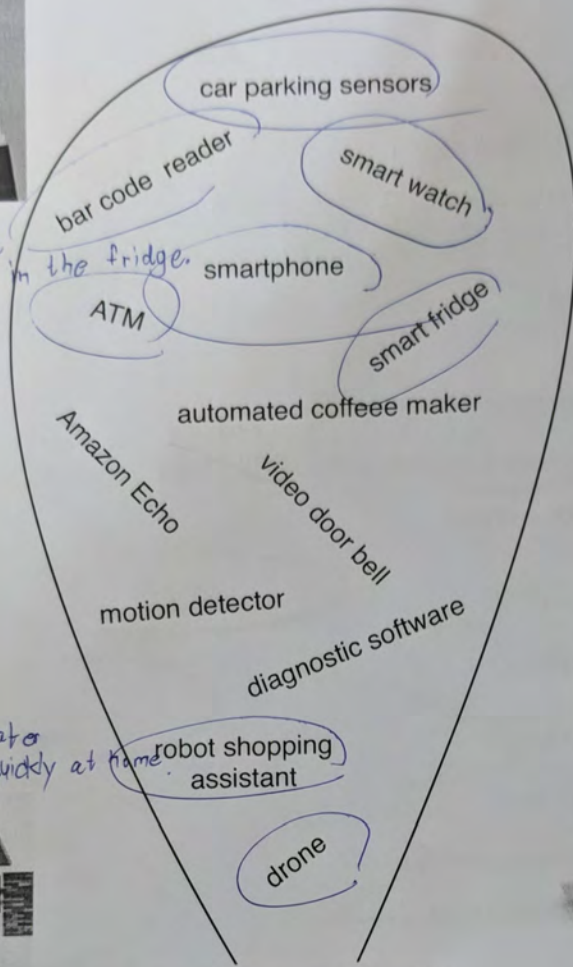 car parking sensors
bar code reader
smart watch
in the fridge.
smartphone
ATM
smart fridge
automated coffeee maker
Amazon Echo
video door bell
motion detector
diagnostic software
robot shopping
quickly at home.
assistant
drone